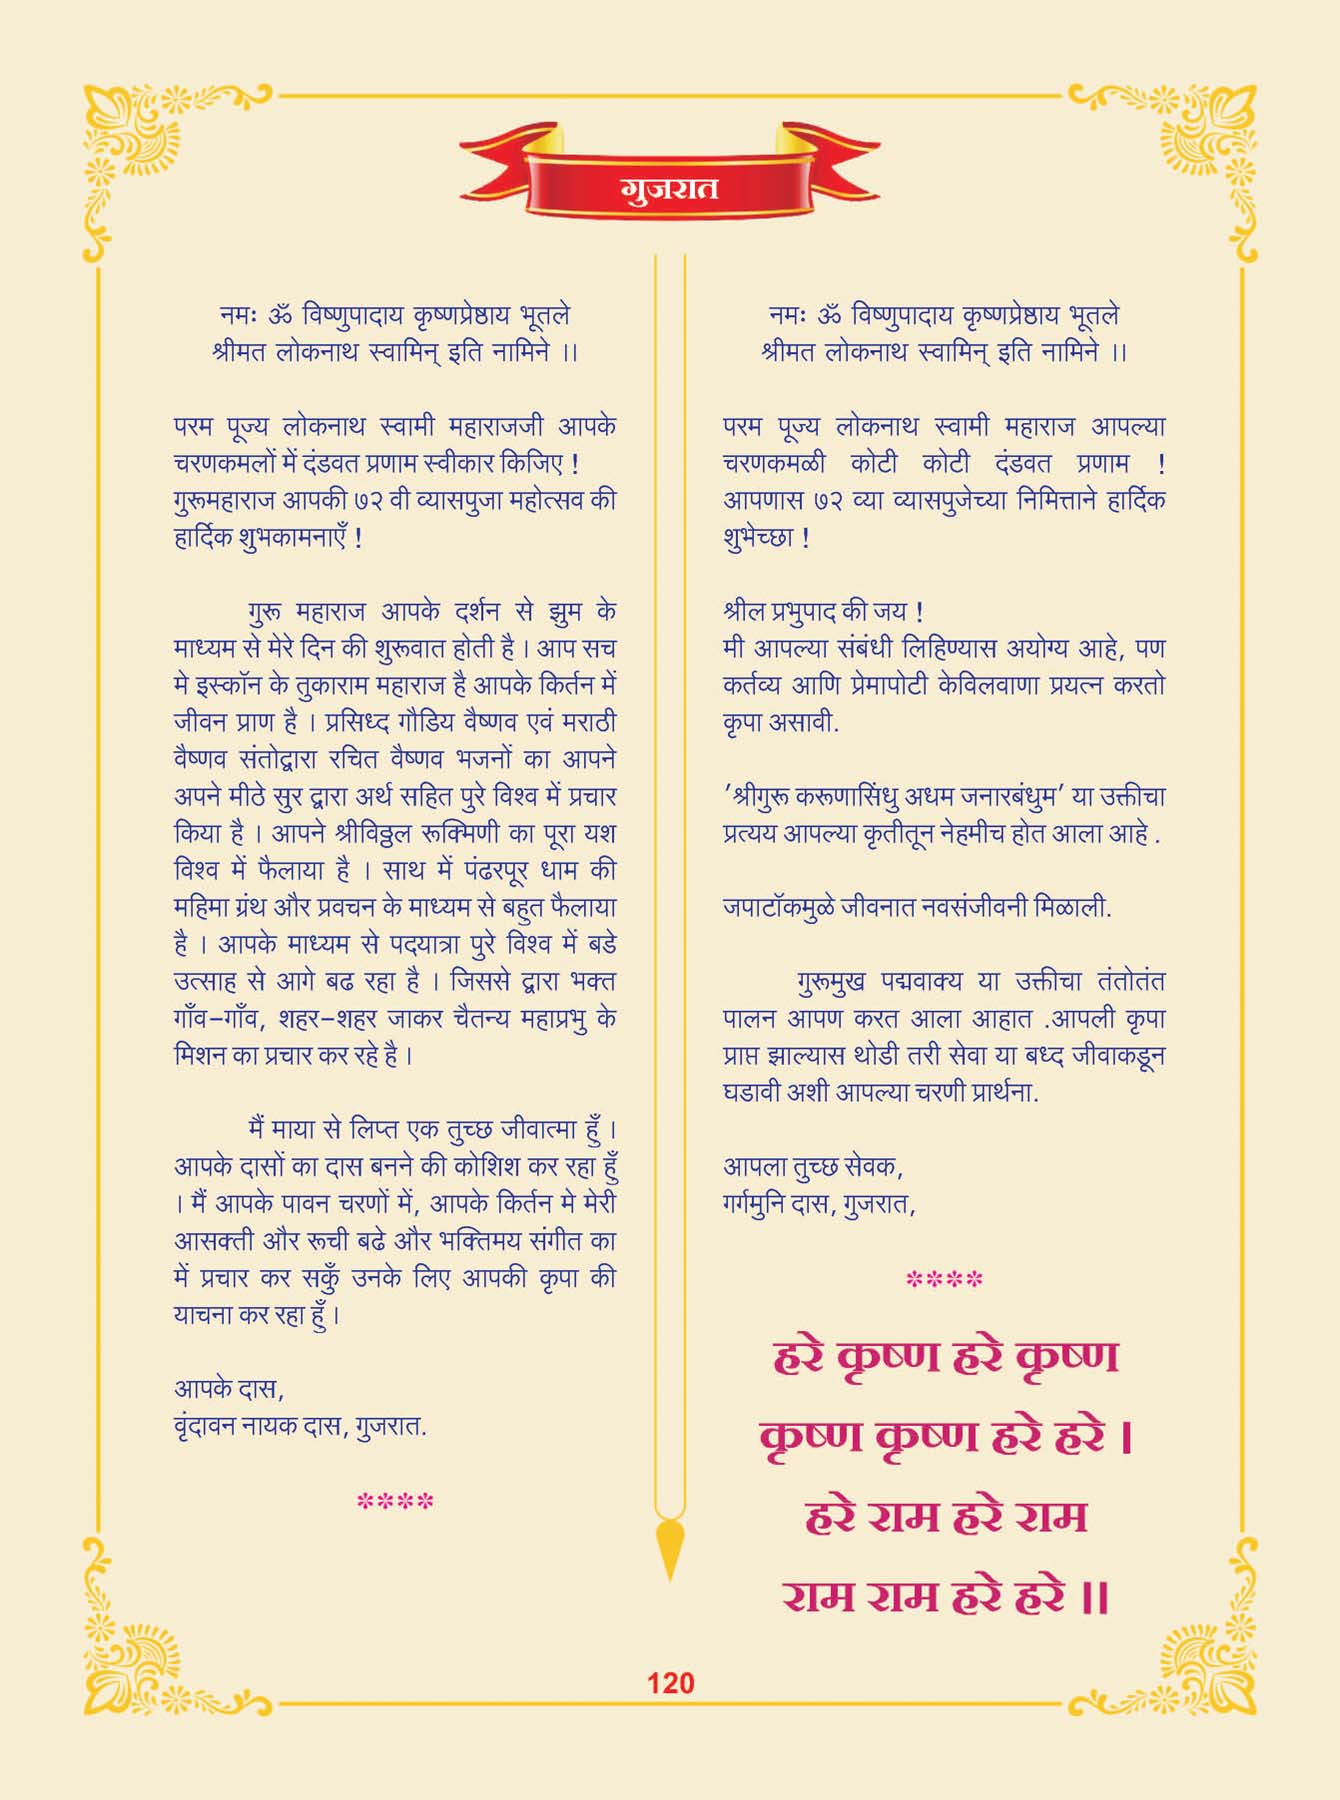 गुजरात
नमः ॐ विष्णुपादाय कृष्णप्रेष्ठाय भूतले
श्रीमत लोकनाथ स्वामिन् इति नामिने ।।
परम पूज्य लोकनाथ स्वामी महाराजजी आपके
चरणकमलों में दंडवत प्रणाम स्वीकार किजिए !
गुरूमहाराज आपकी ७२ वी व्यासपुजा महोत्सव की
हार्दिक शुभकामनाएँ !
गुरू महाराज आपके दर्शन से झुम के
माध्यम से मेरे दिन की शुरूवात होती है । आप सच
मे इस्कॉन के तुकाराम महाराज है आपके किर्तन में
जीवन प्राण है । प्रसिध्द गौडिय वैष्णव एवं मराठी
वैष्णव संतोद्वारा रचित वैष्णव भजनों का आपने
अपने मीठे सुर द्वारा अर्थ सहित पुरे विश्व में प्रचार
किया है । आपने श्रीविठ्ठल रूक्मिणी का पूरा यश
विश्व में फैलाया है । साथ में पंढरपूर धाम की
महिमा ग्रंथ और प्रवचन के माध्यम से बहुत फैलाया
है । आपके माध्यम से पदयात्रा पुरे विश्व में बडे
उत्साह से आगे बढ रहा है । जिससे द्वारा भक्त
गाँव–गाँव, शहर–शहर जाकर चैतन्य महाप्रभु के
मिशन का प्रचार कर रहे है ।
मैं माया से लिप्त एक तुच्छ जीवात्मा हुँ ।
आपके दासों का दास बनने की कोशिश कर रहा हुँ
। मैं आपके पावन चरणों में, आपके किर्तन मे मेरी
आसक्ती और रूची बढे और भक्तिमय संगीत का
में प्रचार कर सकुँ उनके लिए आपकी कृपा की
याचना कर रहा हुँ ।
आपके दास,
वृंदावन नायक दास, गुजरात.
****
नमः ॐ विष्णुपादाय कृष्णप्रेष्ठाय भूतले
श्रीमत लोकनाथ स्वामिन् इति नामिने ।।
परम पूज्य लोकनाथ स्वामी महाराज आपल्या
चरणकमळी कोटी कोटी दंडवत प्रणाम !
आपणास ७२ व्या व्यासपुजेच्या निमित्ताने हार्दिक
शुभेच्छा !
श्रील प्रभुपाद की जय !
मी आपल्या संबंधी लिहिण्यास अयोग्य आहे, पण
कर्तव्य आणि प्रेमापोटी केविलवाणा प्रयत्न करतो
कृपा असावी.
'श्रीगुरू करूणासिंधु अधम जनारबंधुम' या उक्तीचा
प्रत्यय आपल्या कृतीतून नेहमीच होत आला आहे .
जपाटॉकमुळे जीवनात नवसंजीवनी मिळाली.
गुरूमुख पद्मवाक्य या उक्तीचा तंतोतंत
पालन आपण करत आला आहात .आपली कृपा
प्राप्त झाल्यास थोडी तरी सेवा या बध्द जीवाकडून
घडावी अशी आपल्या चरणी प्रार्थना.
आपला तुच्छ सेवक,
गर्गमुनि दास, गुजरात,
****
हरे कृष्ण हरे कृष्ण
कृष्ण कृष्ण हरे हरे ।
हरे राम हरे राम
राम राम हरे हरे ।।
120